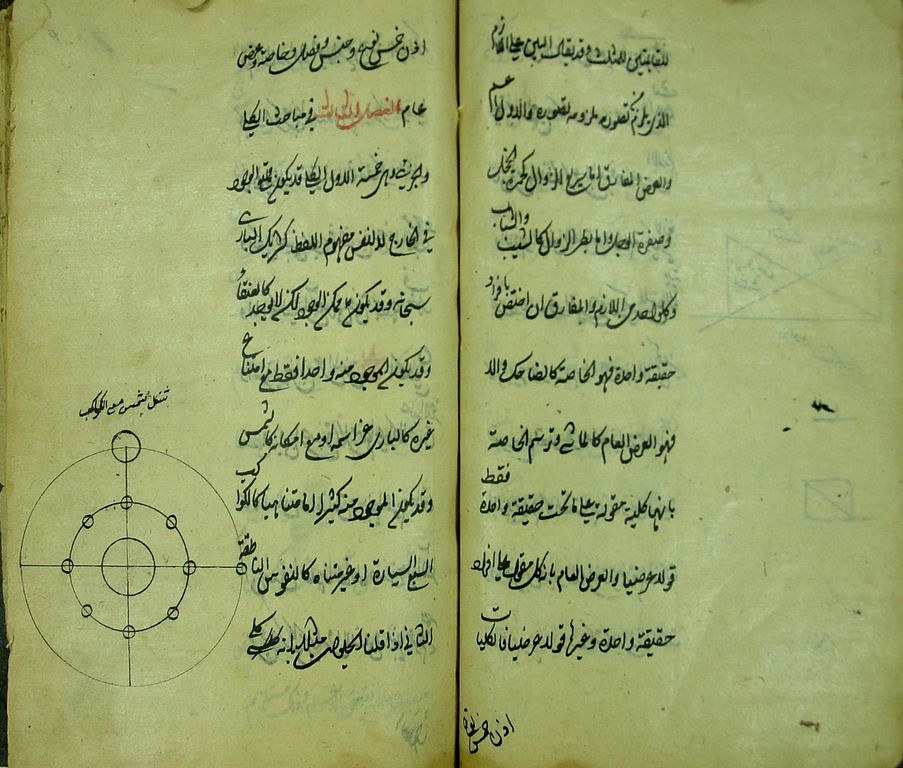 وقد يقال البين على اللازم
الذي يلزم تصوره ملزومه تصوره والاول اعم
والعرض المفارق اما سريع الزوال كحمرة الخجل
وصفرة الوجل واما بطئ الزوال كالشيب والشباب
وكل واحد من اللازم والمفارق ان اختص بافراد
حقيقة واحدة فهو الخاصة كالضاحك والا
فهو العرض العام كالماشي وترسم الخاصة
بانها كلية مقولة على ما تحت حقيقة واحدة فقط
قولا عرضيا والعرض العام بانه كلي مقول على افراد
حقيقة واحدة وغيرها قولا عرضيا فالكليات
اذن خمس نوع
اذن خمس نوع وجنس وفصل وخاصة وعرض
عام الفصل الثالث في مباحث الكلي
والجزئي وهي خمسة الاول الكلي قد يكون ممتنع الوجود
في الخارج لا لنفس مفهوم اللفظ كشريك الباري
سبحانه وقد يكون ممكن الوجود لكن لا يوجد كالعنقاء
وقد يكون الموجود منه واحدا فقط مع امتناع
غيره كالباري عز اسمه او مع امكانه كالشمس
وقد يكون الموجود منه كثيرا اما متناهيا كالكواكب
السبع السيارة او غير متناه كالنفوس الناطقة
الثاني اذا قلنا الحيوان مثلا بانه كلي
الشمس مع الكواكب